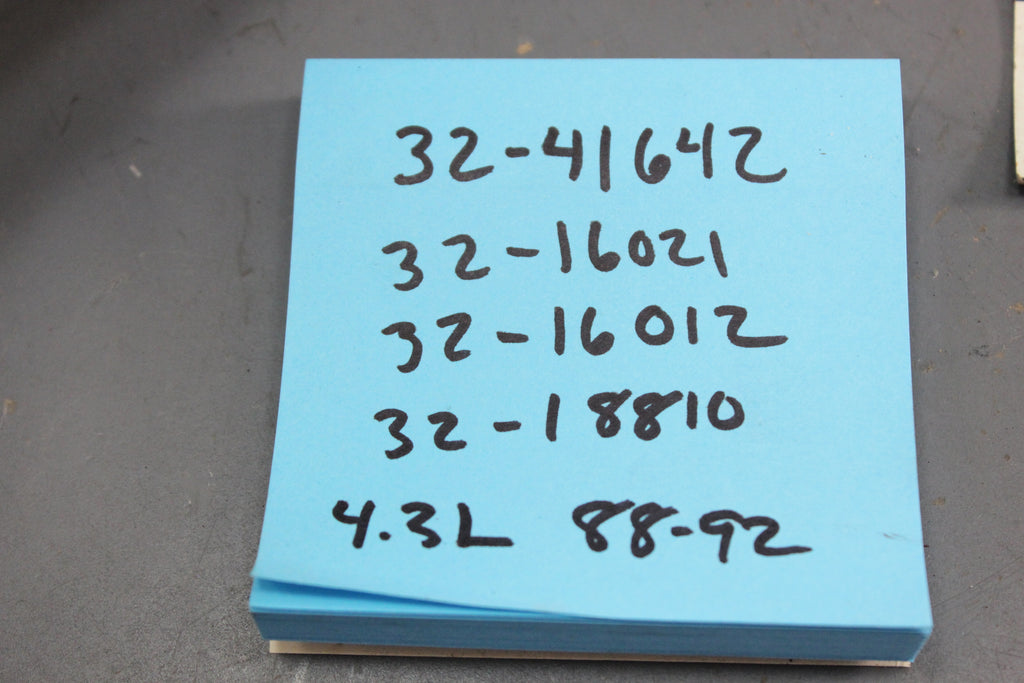 32-41642
32-16021
32-16012
32-18810
4.3L 88-92